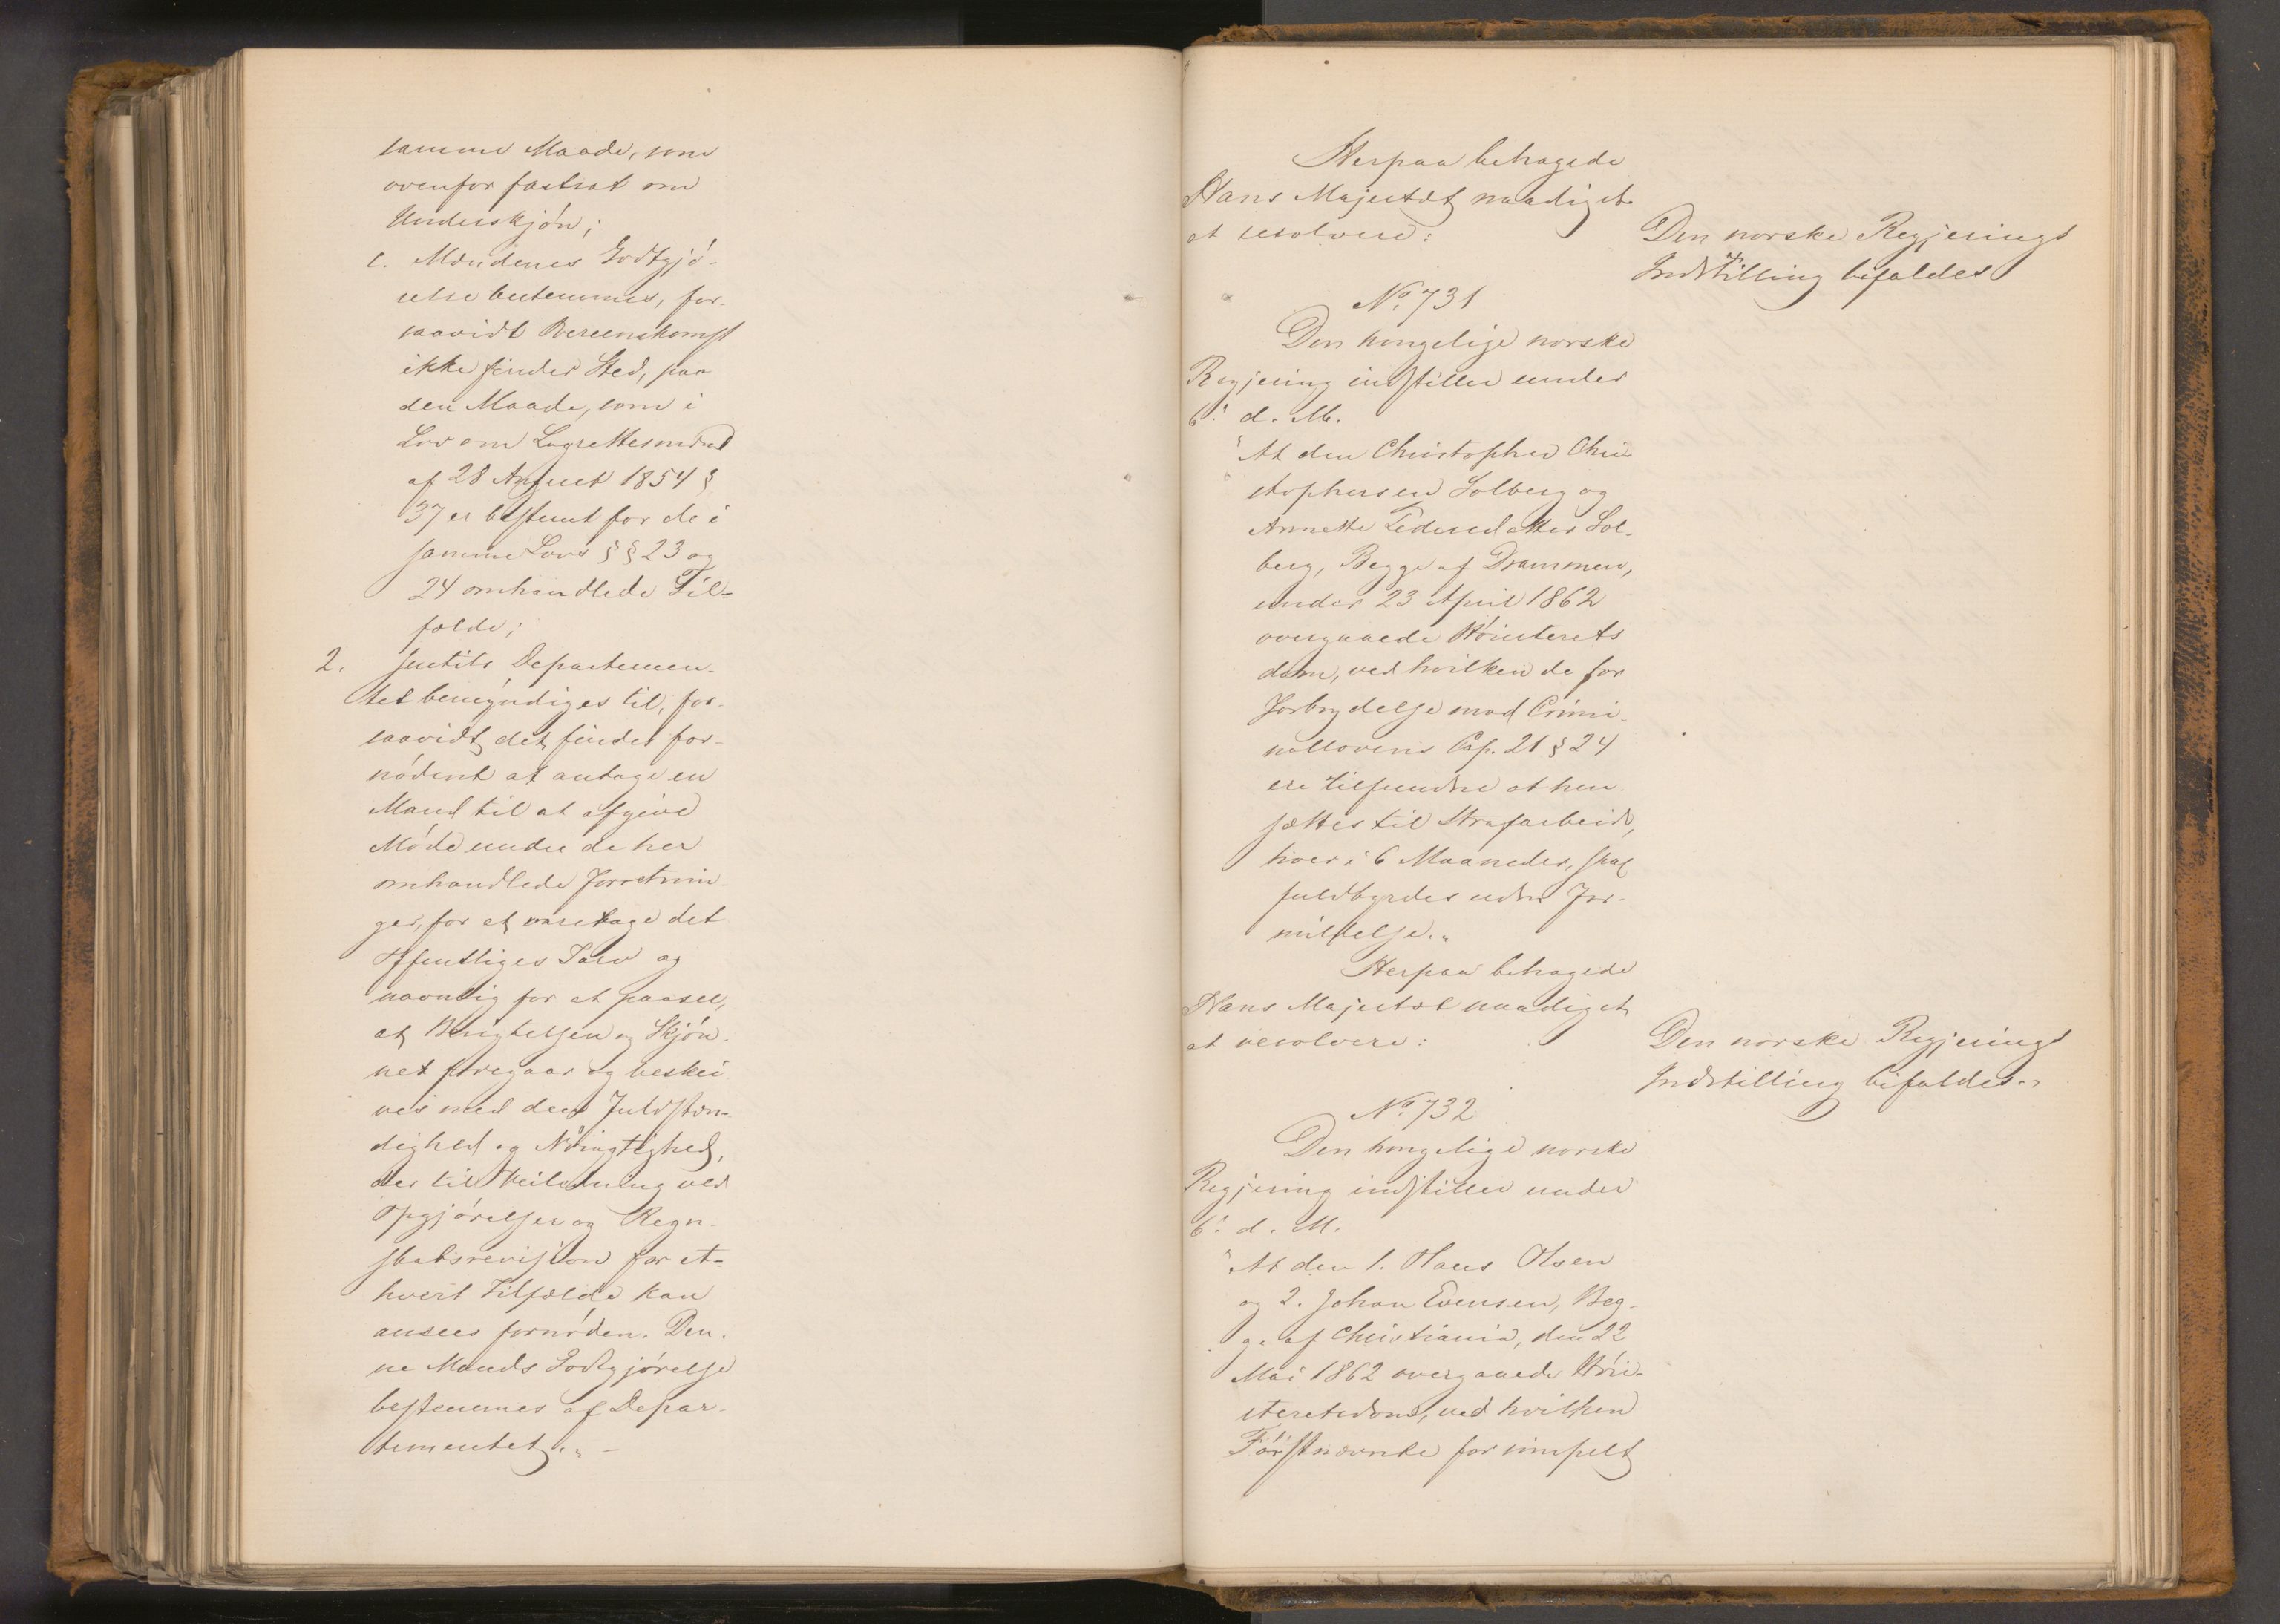 samme Maade, som
ovenfor fastsat om
Underskjøn;
c. Mændenes Godtgjø-
relse bestemmes, for-
saavidt Overeenskomst
ikke finder Sted, paa
den Maade, som i
Lov om Lagrettesmænd
af 28 August 1854 §
37 er bestemt for de i
samme Lovs §§ 23 og
24 omhandlede Til-
fælde;
2. Justits Departemen-
tet bemyndiges til, for-
saavidt det findes for-
nødent at antage en
Mand til at afgive
Møde under de her
omhandlede Forretnin-
ger, for at varetage det
Offentliges Tarv og
navnlig for at paasee,
at Besigtelsen og Skjøn-
net foregaar og beskri-
ves med den Fuldstæn-
dighed og Nøiagtighed,
der til Veiledning ved
Opgjørelser og Regn-
skabsrevision for et-
hvert Tilfælde kan
ansees fornøden. Den-
ne Mands Godtgjørelse
bestemmes af Depar-
tementet." -
Herpaa behagede
Hans Majestæt naadigst
at resolvere:
Den norske Regjerings
Indstilling bifaldes
No. 731
Den kongelige norske
Regjering indstiller under
6. d. M.
"At den Christopher Chri-
stophersen Solberg og
Annette Pedersdatter Sol-
berg, Begge af Drammen,
under 23 April 1862
overgaaede Høiesterets
dom, ved hvilken de for
Forbrydelse mod Crimi-
nallovens Cap. 21 § 24
ere tilfundne at hen-
sættes til Strafarbeide,
hver i 6 Maaneder, skal
fuldbyrdes uden For-
mildelse."
Herpaa behagede
Hans Majestæt naadigst
at resolvere:
Den norske Regjerings
Indstilling bifaldes."
No. 732
Den kongelige norske
Regjering indstiller under
6. d. M.
"At den 1. Hans Olsen
og 2. Johan Evensen, Beg-
ge af Christiania, den 22
Mai 1862 overgaaede Høie-
steretsdom, ved hvilken
Førstnævnte for simpelt